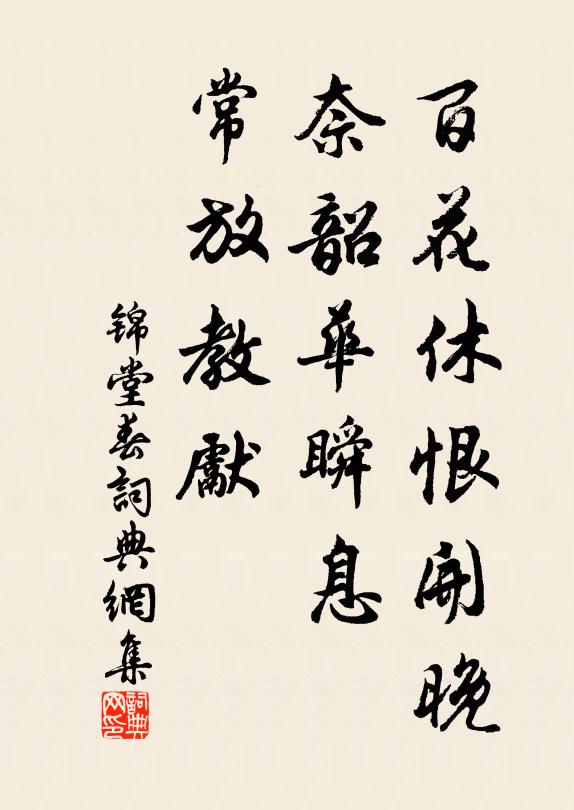 百花休恨開晚
奈韶華瞬息
常放教獻
锦堂春詞典網集
詞典网印